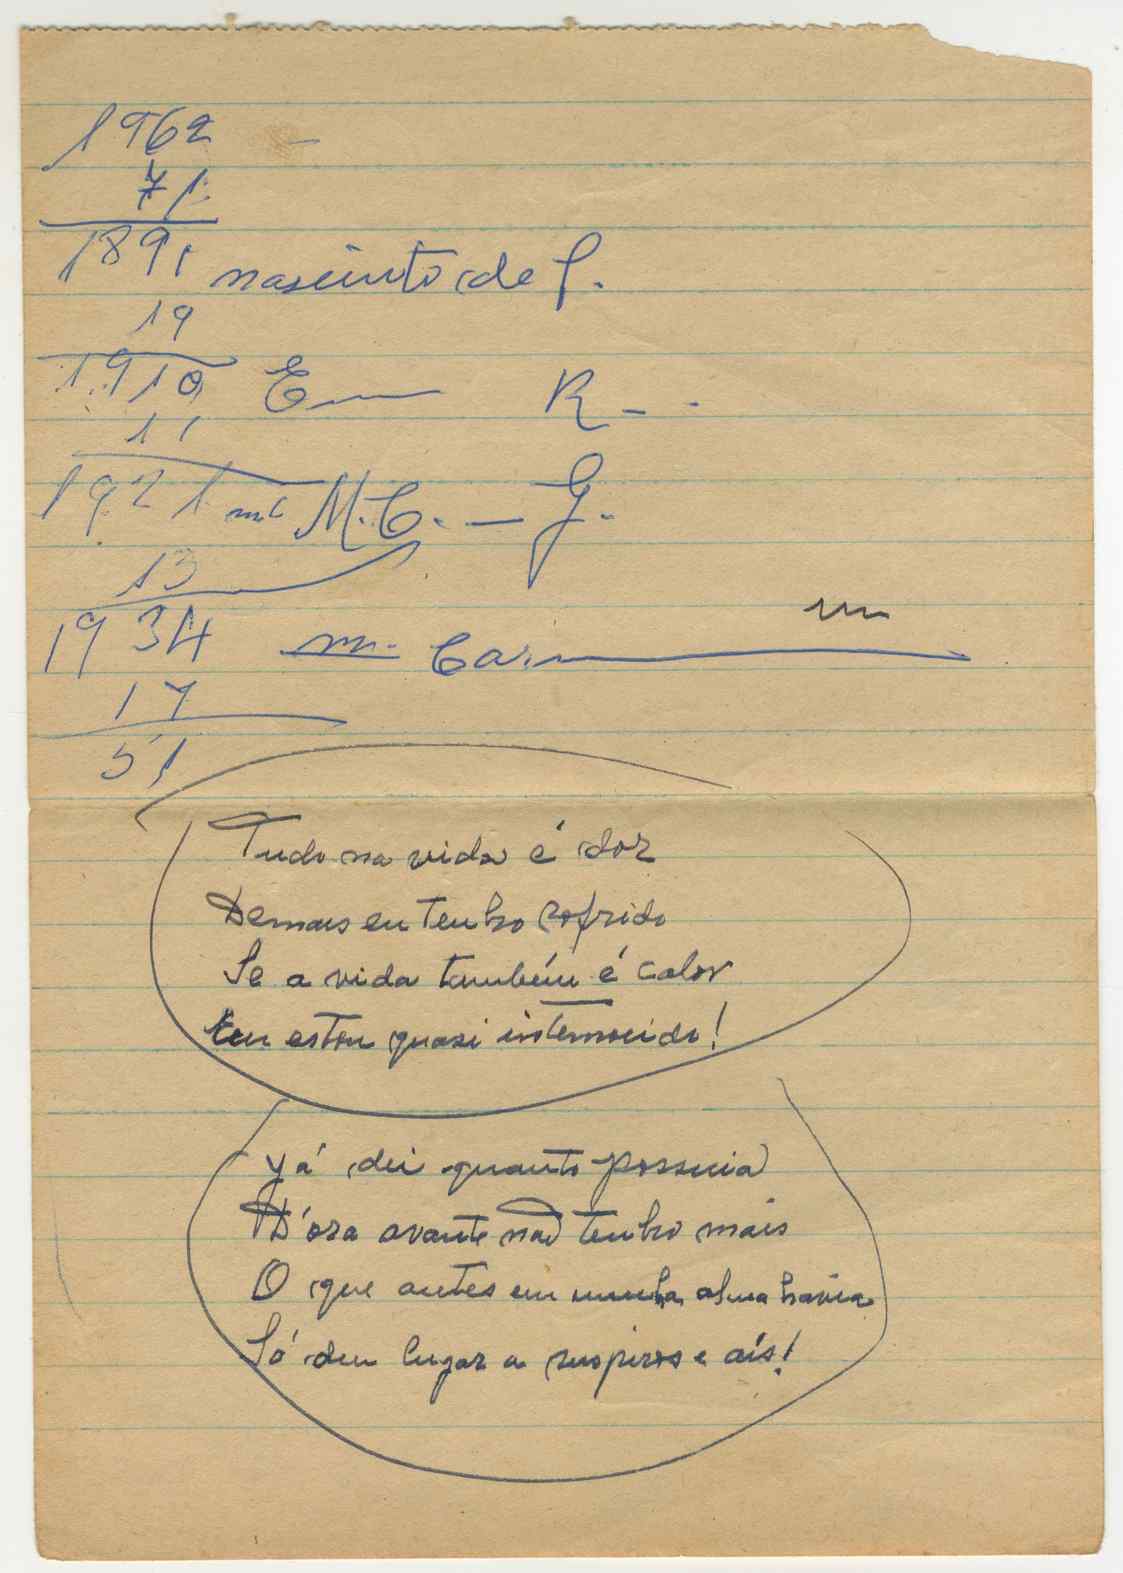 1962 -
71
1891 nascimto de J.
19
1910 E— R - -
11
1921 M.C. - G.
13
1934 m. Ca.
17
51
Tudo na vida é dor
Demais eu tenho sofrido
Se a vida também é calor
Eu estou quasi internecido!
Já dei quanto possuia
D'ora avante não tenho mais
O que antes em minha alma havia
Só deu lugar a suspiros e ais!